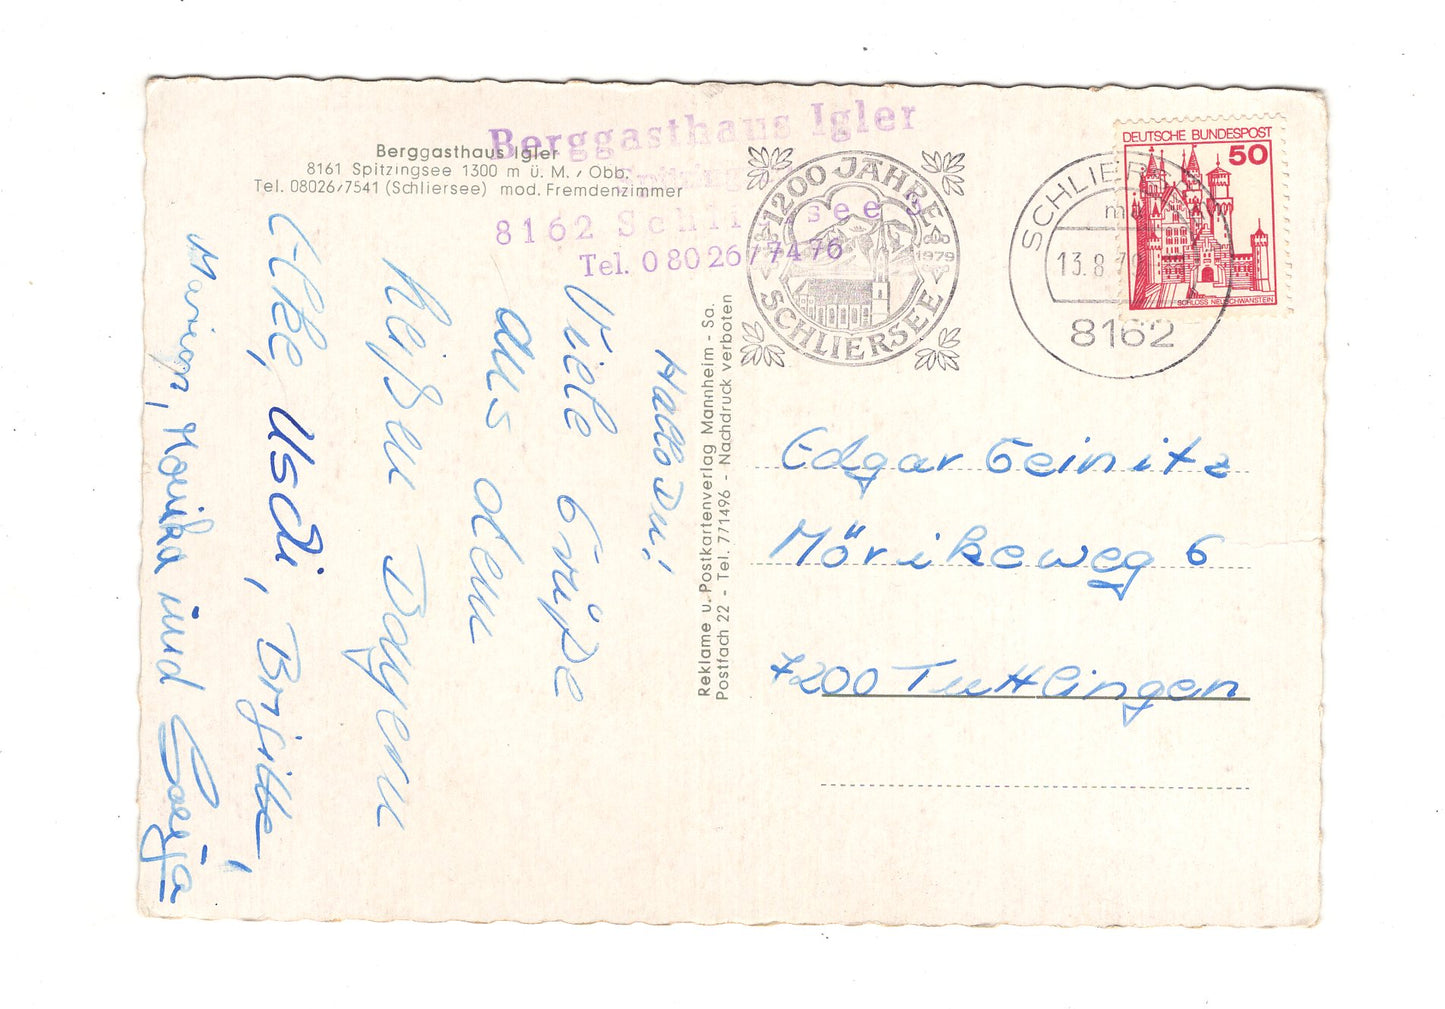 Berggasthaus Igler
8161 Spitzingsee 1300 m ü. M., Obb.
Tel. 08026/7541 (Schliersee) mod. Fremdenzimmer
Berggasthaus Igler
8162 Schliersee
Tel. 08026/77476
1200 JAHRE
1979
SCHLIERSEE
SCHLIER
13.8.
8162
DEUTSCHE BUNDESPOST
50
SCHLOSS NEUSCHWANSTEIN
Hallo Du!
Viele Grüße
aus dem
heißen Bayern
Elke, Uschi, Brigitte,
Marion, Monika und Sonja
Reklame u. Postkartenverlag Mannheim - Sa.
Postfach 22 - Tel. 771496 - Nachdruck verboten
Edgar Geinitz
Mörikeweg 6
7200 Tuttlingen